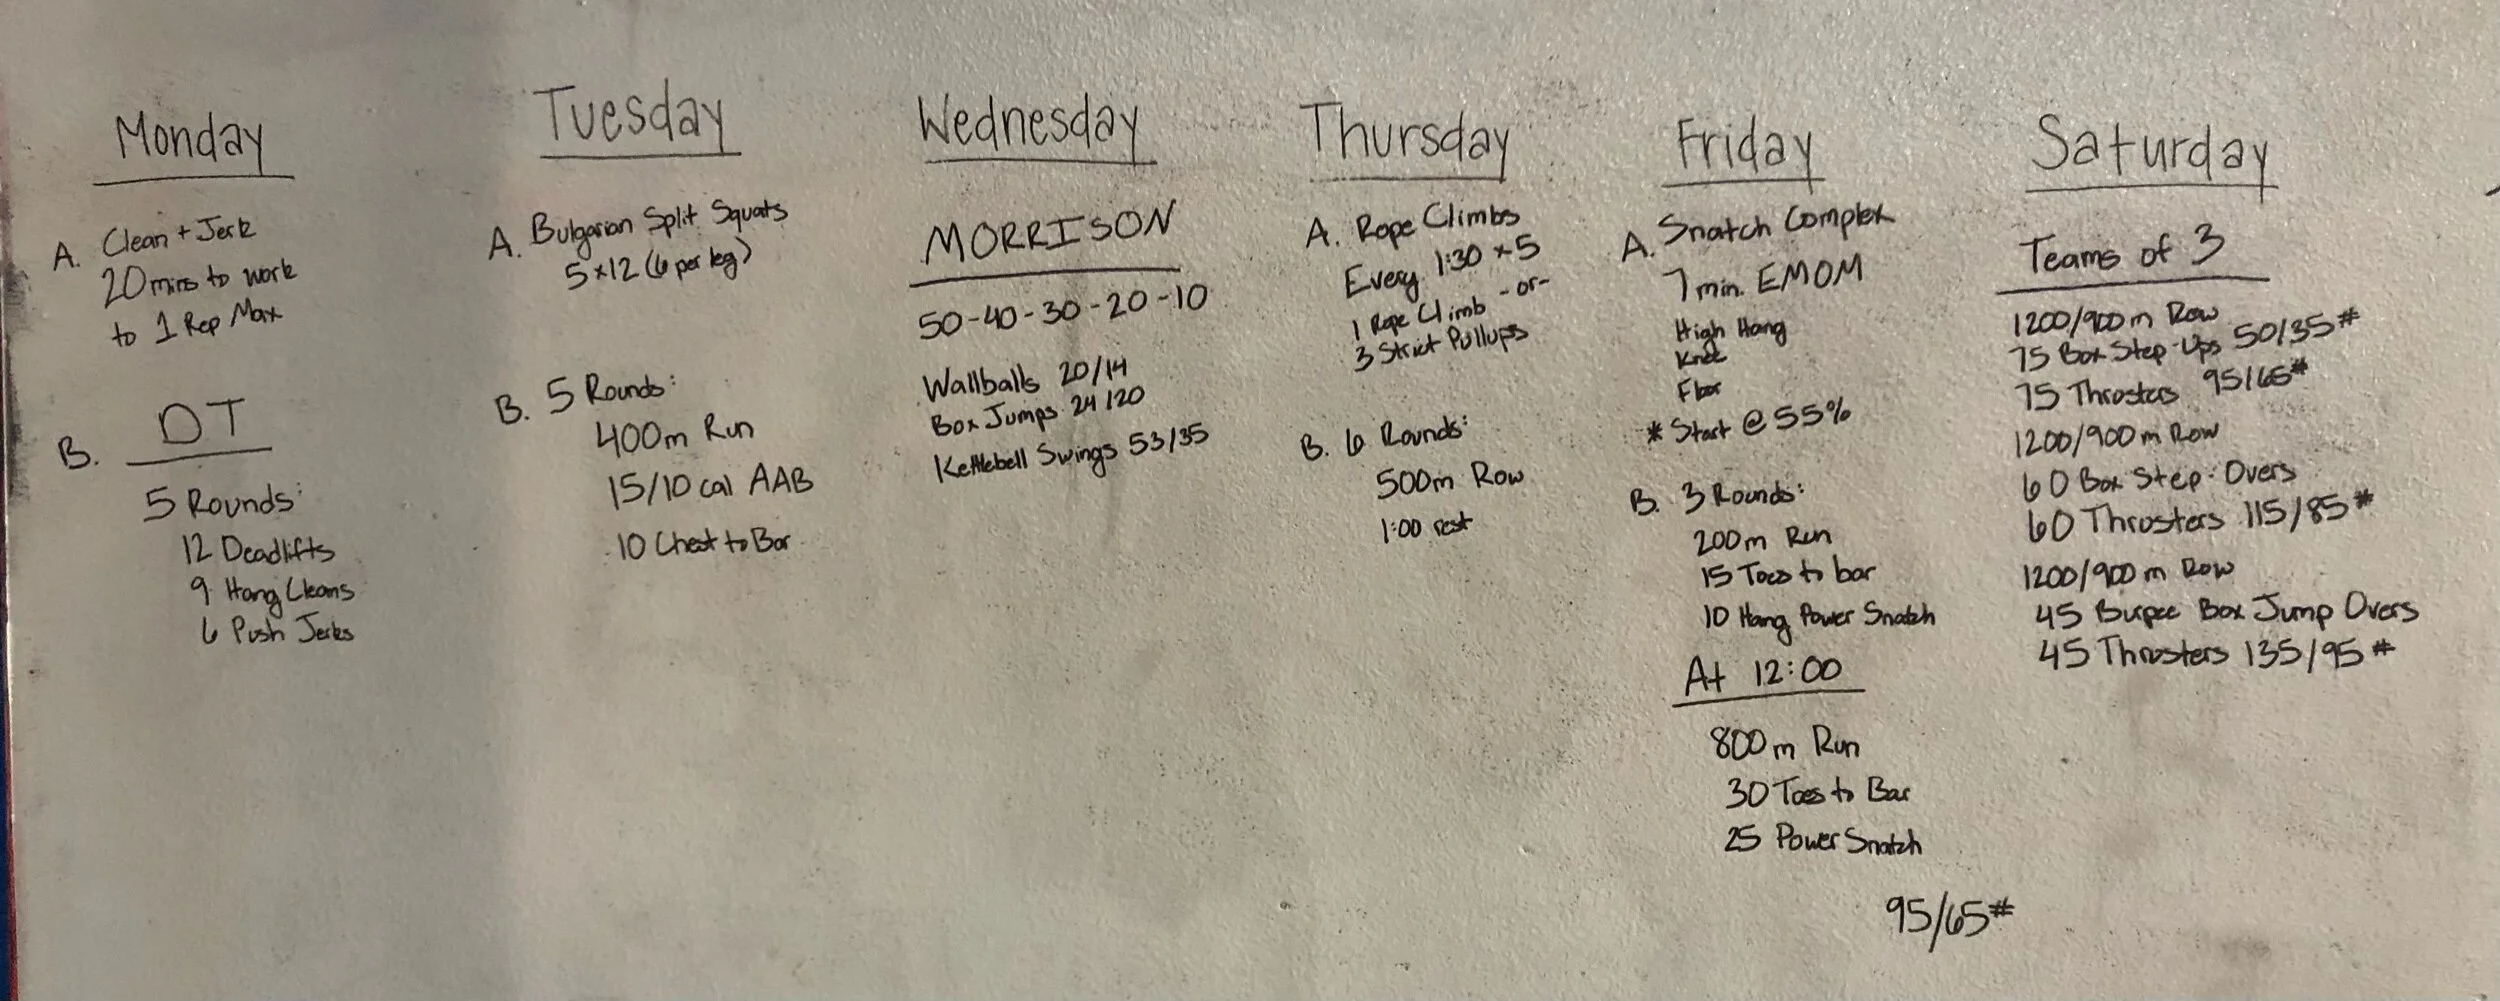 Monday
A. Clean + Jerk
20 mins to work
to 1 Rep Max
B. DT
5 Rounds:
12 Deadlifts
9 Hang Cleans
6 Push Jerks
Tuesday
A. Bulgarian Split Squats
5x12 (6 per leg)
B. 5 Rounds:
400m Run
15/10 cal AAB
10 Chest to Bar
Wednesday
MORRISON
50-40-30-20-10
Wallballs 20/14
Box Jumps 24/20
Kettlebell Swings 53/35
Thursday
A. Rope Climbs
Every 1:30 x 5
1 Rope Climb -or-
3 Strict Pullups
B. 6 Rounds:
500m Row
1:00 rest
Friday
A. Snatch Complex
7 min. EMOM
High Hang
Knee
Floor
* Start @ 55%
B. 3 Rounds:
200m Run
15 Toes to bar
10 Hang Power Snatch
At 12:00
800m Run
30 Toes to Bar
25 Power Snatch
95/65#
Saturday
Teams of 3
1200/900m Row
75 Box Step-Ups 50/35#
75 Thrusters 95/65#
1200/900m Row
60 Box Step-Overs
60 Thrusters 115/85#
1200/900m Row
45 Burpee Box Jump Overs
45 Thrusters 135/95#